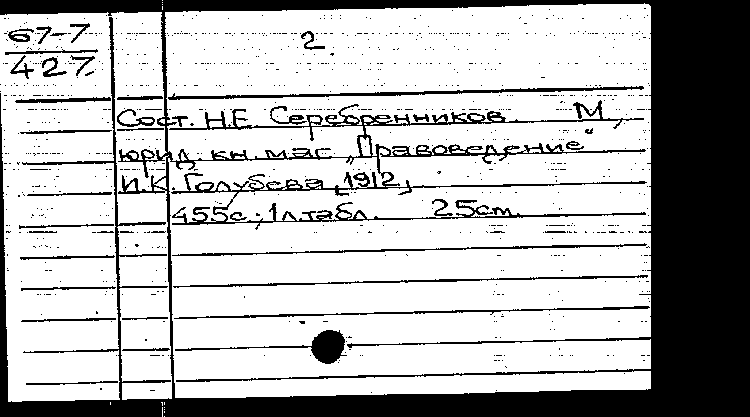 67-7
427
2.
Сост. Н.Е. Серебренников. М,
юрид. кн. маг „Правоведение"
И.К. Голубева, 1912,
455с.; 1 л. табл. 25cm.